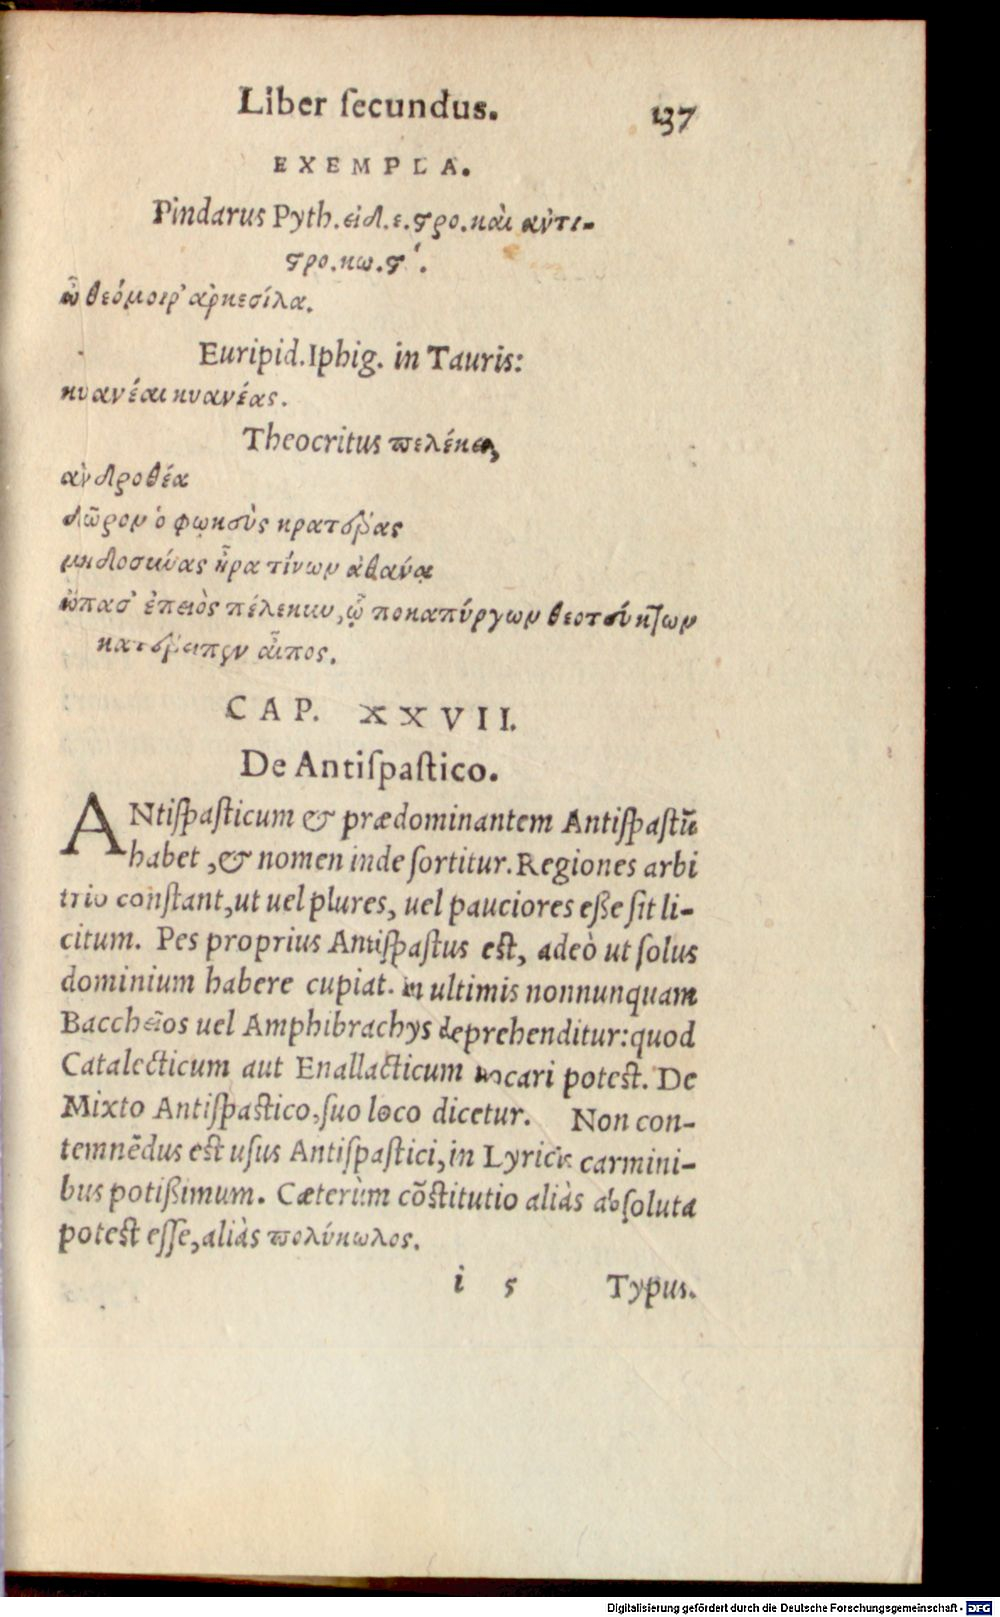 Liber ſecundus. 137
EXEMPLA.
Pindarus Pyth. ειδ. ε. ϛρο. και αντι-
ϛρο. κω. ϛ΄.
ὦ θεόμοιρ’ αρκεσίλα.
Euripid. Iphig. in Tauris:
κυανέαι κυανέας.
Theocritus πελέκει,
ανδροθέα
δῶρον ὁ φωκεὺς κρατερᾶς
μηδοσύνας ἦρα τίνων ἀθανάᾳ
ὤπασ’ ἐπειὸς πέλεκυν, ᾧ ποκα πύργων θεοτεύκτων
κατέρειπεν αἶπος.
CAP. XXVII.
De Antiſpaſtico.
ANtiſpaſticum & prædominantem Antiſpaſtũ
habet, & nomen inde ſortitur. Regiones arbi
trio conſtant, ut uel plures, uel pauciores eſſe ſit li-
citum. Pes proprius Antiſpaſtus eſt, adeò ut ſolus
dominium habere cupiat. in ultimis nonnunquam
Baccheios uel Amphibrachys deprehenditur: quod
Catalecticum aut Enallacticum uocari poteſt. De
Mixto Antiſpaſtico, ſuo loco dicetur. Non con-
temnẽdus eſt uſus Antiſpaſtici, in Lyricis carmini-
bus potißimum. Cæterùm cõſtitutio aliàs abſoluta
poteſt eſſe, aliàs πολύκωλος.
i 5 Typus.
Digitalisierung gefördert durch die Deutsche Forschungsgemeinschaft - DFG